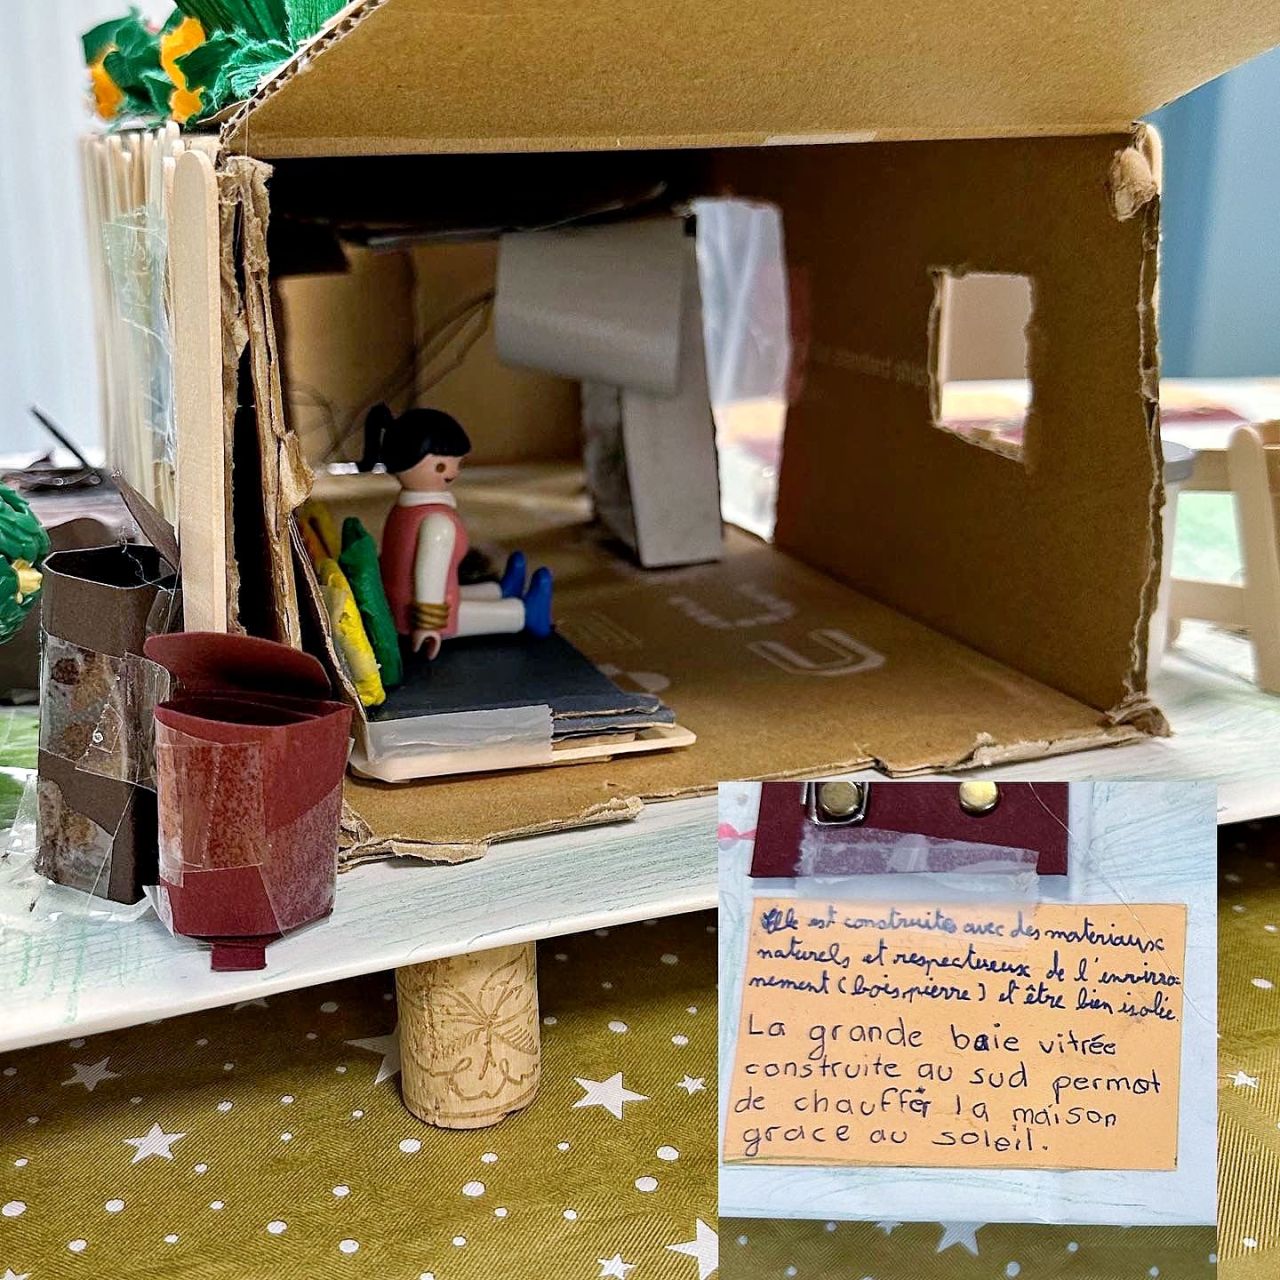 Elle est construite avec des materiaux
naturels et respectueux de l'enviro-
nement (bois, pierre) et être bien isolée.
La grande baie vitrée
construite au sud permet
de chauffer la maison
grace au soleil.